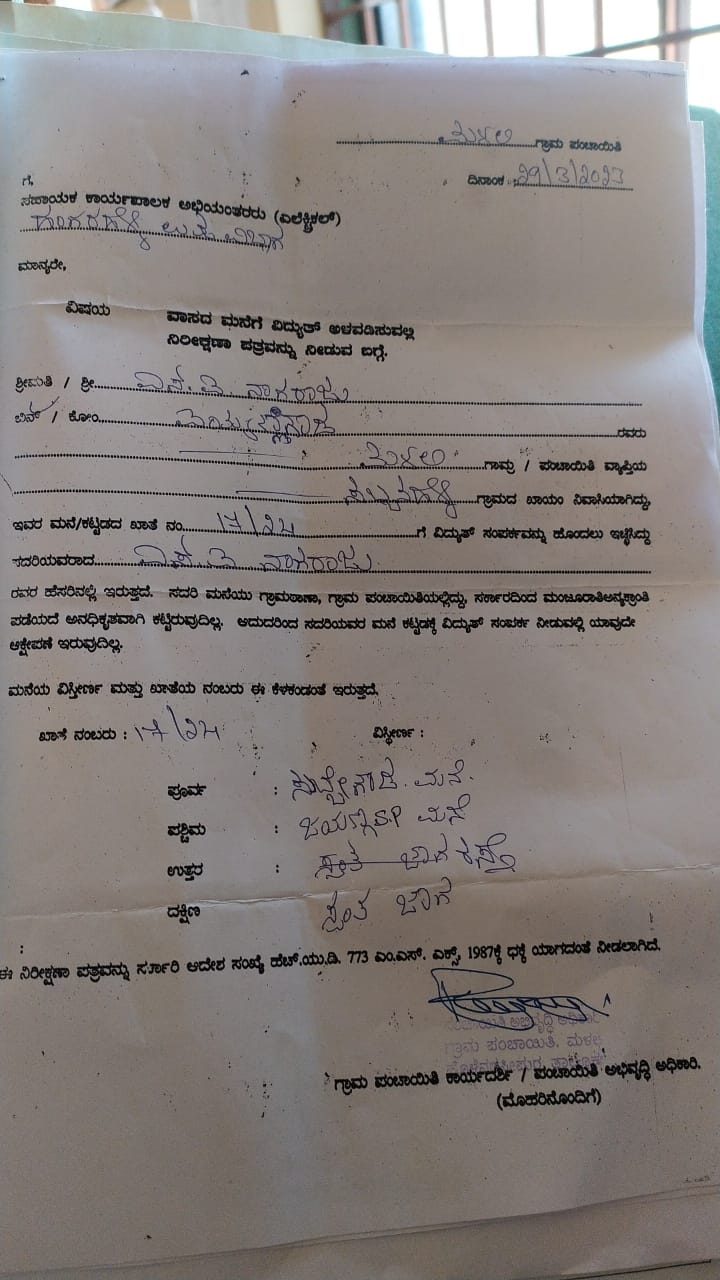 ಮಳಲಿ ಗ್ರಾಮ ಪಂಚಾಯಿತಿ
ದಿನಾಂಕ : 29/3/2023
ಗೆ,
ಸಹಾಯಕ ಕಾರ್ಯಪಾಲಕ ಅಭಿಯಂತರರು (ಎಲೆಕ್ಟ್ರಿಕಲ್)
ಮಾನ್ಯರೇ,
ವಿಷಯ ವಾಸದ ಮನೆಗೆ ವಿದ್ಯುತ್ ಅಳವಡಿಸುವಲ್ಲಿ
ನಿರೀಕ್ಷಣಾ ಪತ್ರವನ್ನು ನೀಡುವ ಬಗ್ಗೆ.
ಶ್ರೀಮತಿ / ಶ್ರೀ. ಎಸ್. ಪಿ ನಾಗರಾಜು
ಬಿನ್ / ಕೋಂ. ರವರು
ಮಳಲಿ ಗ್ರಾಮ / ಪಂಚಾಯಿತಿ ವ್ಯಾಪ್ತಿಯ
ಗ್ರಾಮದ ಖಾಯಂ ನಿವಾಸಿಯಾಗಿದ್ದು,
ಇವರ ಮನೆ/ಕಟ್ಟಡದ ಖಾತೆ ನಂ. 17/24 ಗೆ ವಿದ್ಯುತ್ ಸಂಪರ್ಕವನ್ನು ಹೊಂದಲು ಇಚ್ಛಿಸಿದ್ದು
ಸದರಿಯವರಾದ ಎಸ್. ಪಿ ನಾಗರಾಜು
ರವರ ಹೆಸರಿನಲ್ಲಿ ಇರುತ್ತದೆ. ಸದರಿ ಮನೆಯು ಗ್ರಾಮಠಾಣಾ, ಗ್ರಾಮ ಪಂಚಾಯಿತಿಯಲ್ಲಿದ್ದು, ಸರ್ಕಾರದಿಂದ ಮಂಜೂರಾತಿಅನ್ಯಕ್ರಾಂತಿ
ಪಡೆಯದೆ ಅನಧಿಕೃತವಾಗಿ ಕಟ್ಟಿರುವುದಿಲ್ಲ. ಅದುದರಿಂದ ಸದರಿಯವರ ಮನೆ ಕಟ್ಟಡಕ್ಕೆ ವಿದ್ಯುತ್ ಸಂಪರ್ಕ ನೀಡುವಲ್ಲಿ ಯಾವುದೇ
ಆಕ್ಷೇಪಣೆ ಇರುವುದಿಲ್ಲ.
ಮನೆಯ ವಿಸ್ತೀರ್ಣ ಮತ್ತು ಖಾತೆಯ ನಂಬರು ಈ ಕೆಳಕಂಡಂತೆ ಇರುತ್ತದೆ.
ಖಾತೆ ನಂಬರು : 17/24 ವಿಸ್ತೀರ್ಣ :
ಪೂರ್ವ : ಸುಬ್ಬೇಗೌಡ ಮನೆ.
ಪಶ್ಚಿಮ : ಜಯಣ್ಣ S.P ಮನೆ
ಉತ್ತರ : ಸ್ವಂತ ಜಾಗ ರಸ್ತೆ
ದಕ್ಷಿಣ ಸ್ವಂತ ಜಾಗ
ಈ ನಿರೀಕ್ಷಣಾ ಪತ್ರವನ್ನು ಸರ್ಕಾರಿ ಆದೇಶ ಸಂಖ್ಯೆ ಹೆಚ್.ಯು.ಡಿ. 773 ಎಂ.ಎನ್. ಎಕ್ಸ್, 1987ಕ್ಕೆ ಧಕ್ಕೆ ಯಾಗದಂತೆ ನೀಡಲಾಗಿದೆ.
ಪಂಚಾಯಿತಿ ಅಭಿವೃದ್ಧಿ ಅಧಿಕಾರಿ
ಗ್ರಾಮ ಪಂಚಾಯಿತಿ. ಮಳಲಿ
ಗ್ರಾಮ ಪಂಚಾಯಿತಿ ಕಾರ್ಯದರ್ಶಿ / ಪಂಚಾಯಿತಿ ಅಭಿವೃದ್ಧಿ ಅಧಿಕಾರಿ.
(ಮೊಹರಿನೊಂದಿಗೆ)